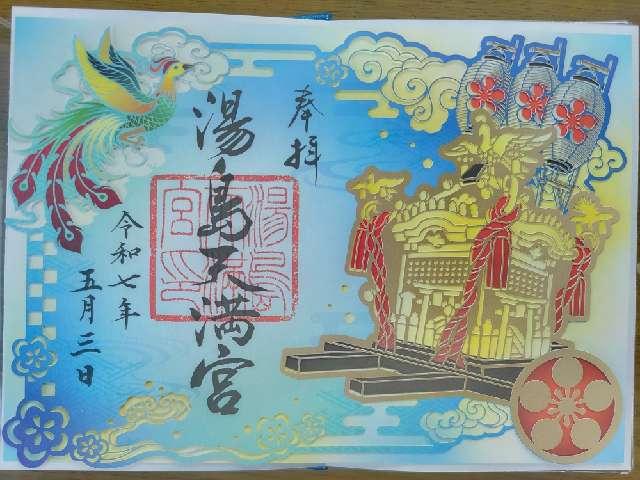 奉拝
湯島天満宮
令和七年
五月三日